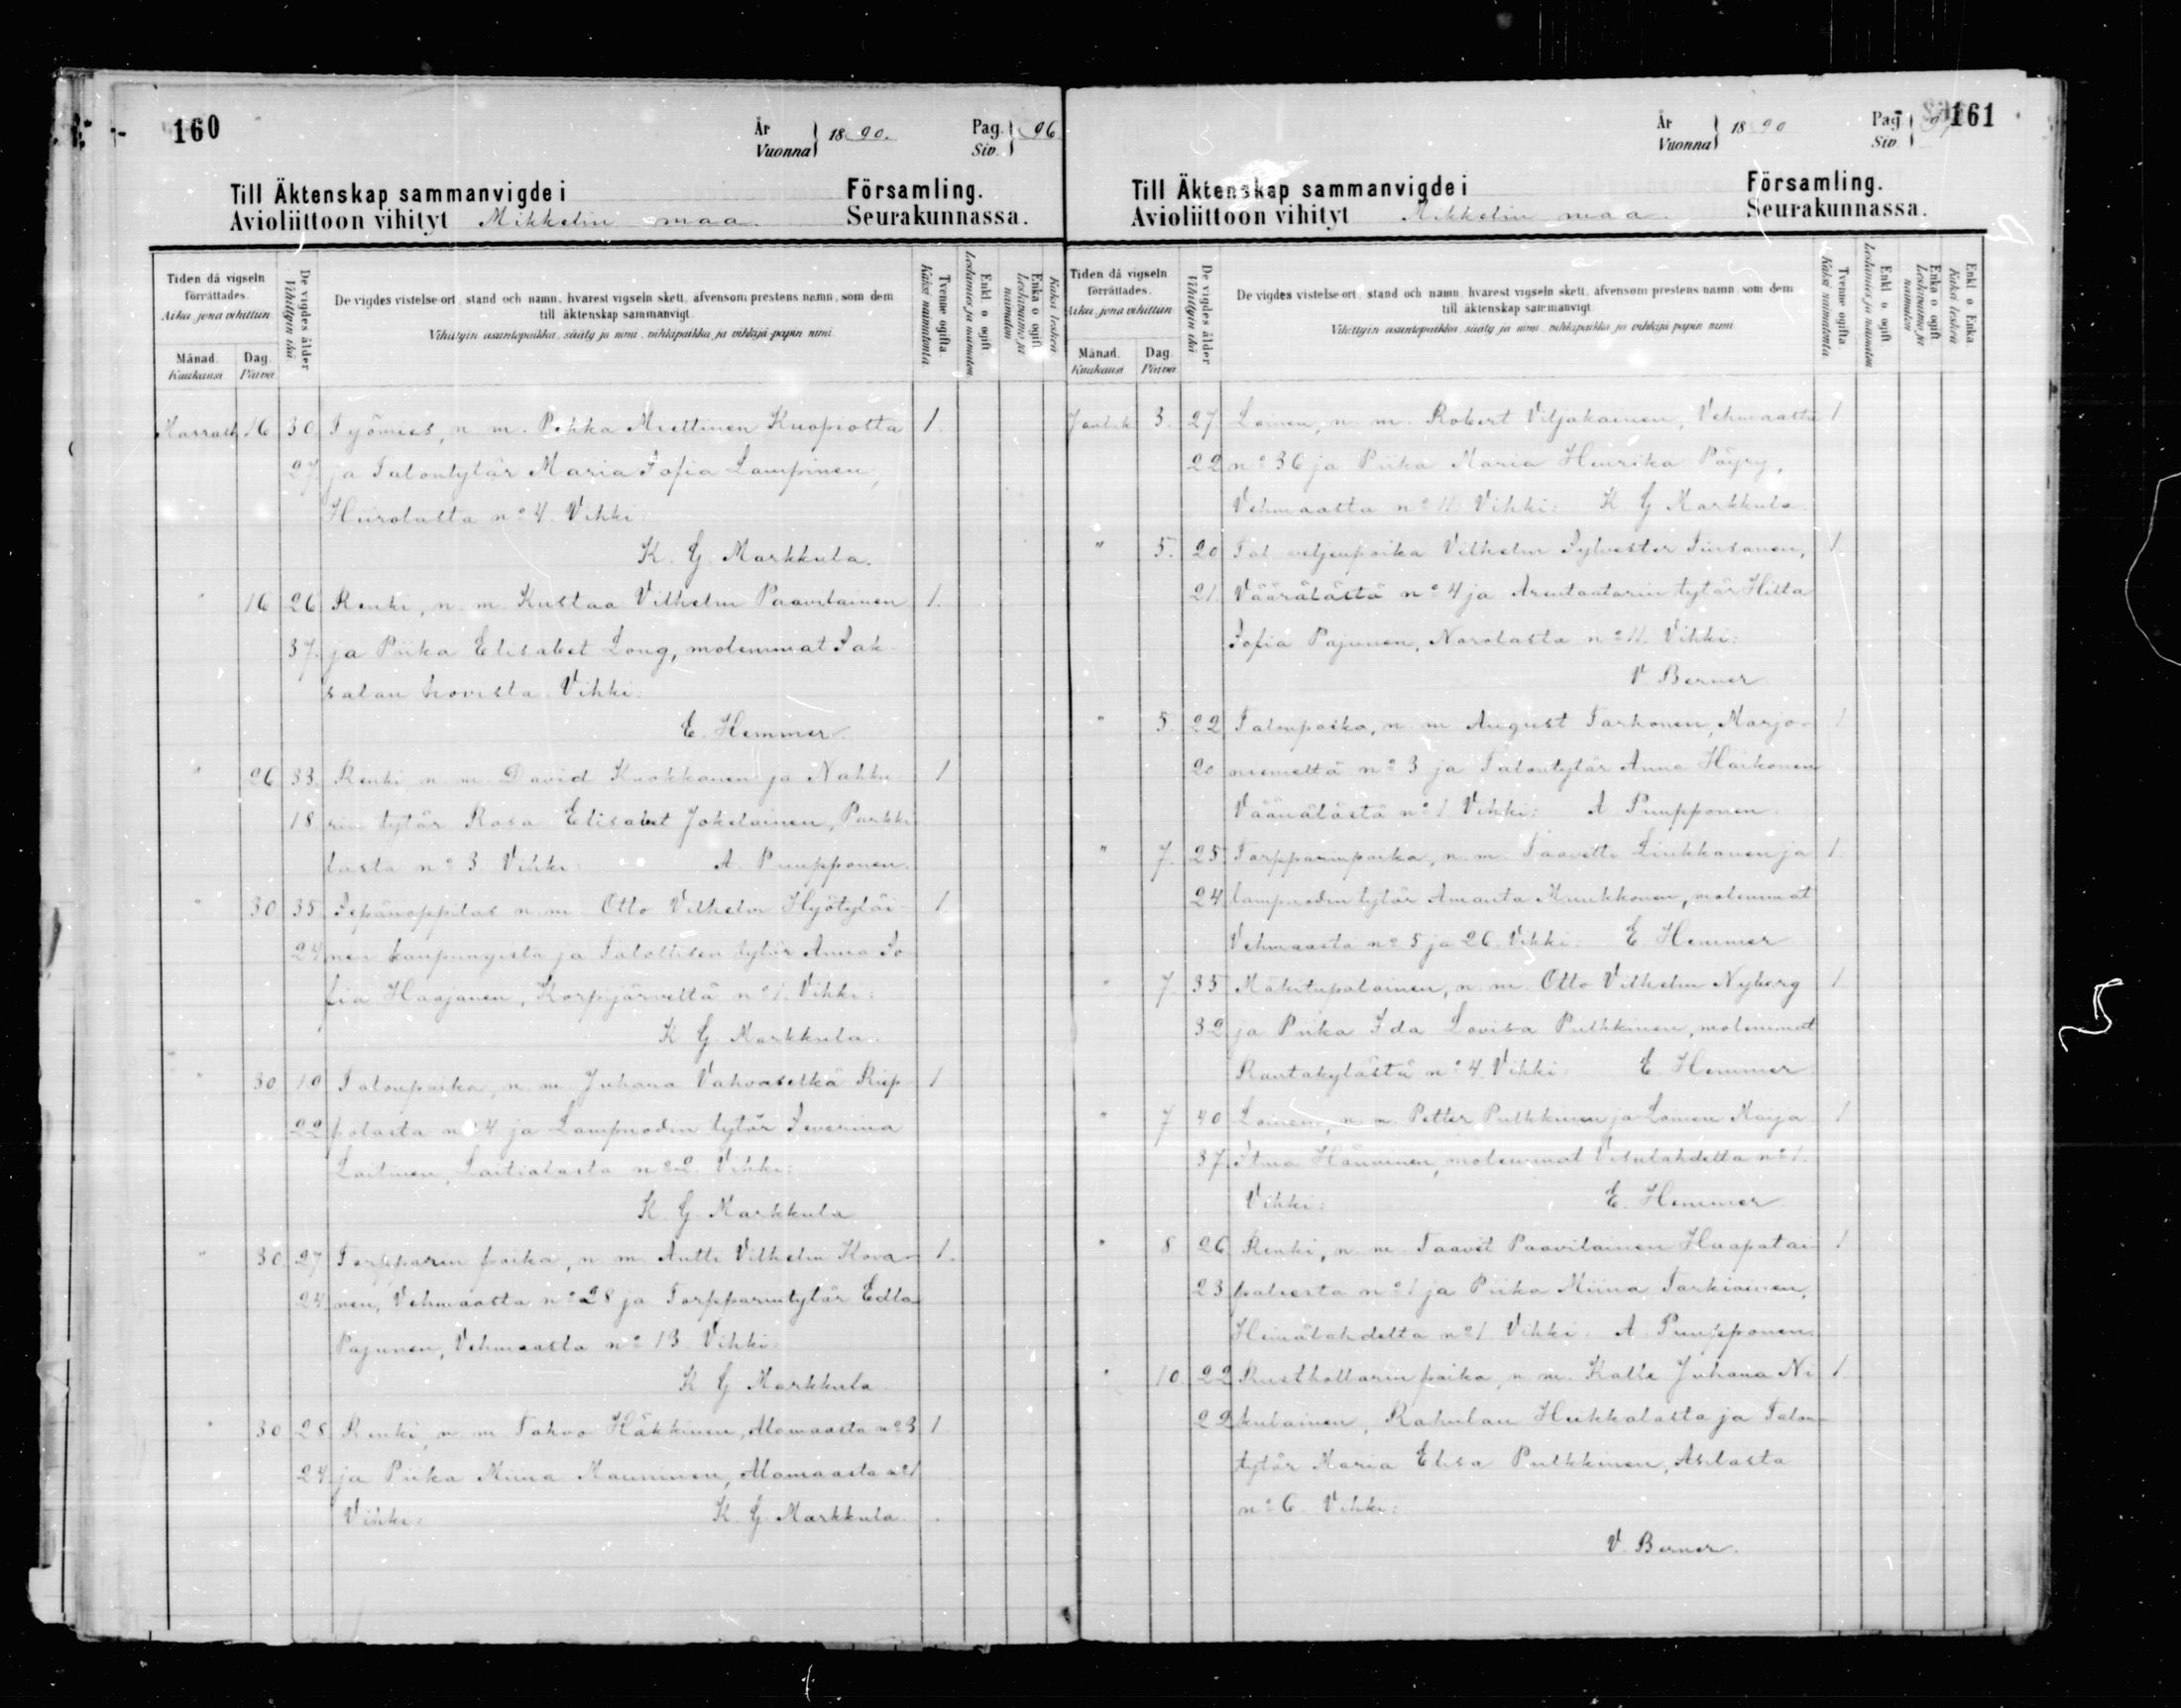 160
År
Vuonna } 1890.
Pag.
Siv. } 96
Till Äktenskap sammanvigde i Församling.
Avioliittoon vihityt Mikkelin maa. Seurakunnassa.
Tiden då vigseln förrättades.
Aika, jona vihittiin
Månad.
Kuukausi
Dag.
Päivä
De vigdes ålder
Vihittyin ikä
De vigdes vistelse ort, stand och namn, hvarest vigseln skett, äfvensom prestens namn, som dem
till äktenskap sammanvigt.
Vihittyin asuntopaikka, sääty ja nimi, vihkipaikka ja vihkijä-papin nimi.
Tvenne ogifta.
Kaksi naimatonta
Enkl. o. ogift
Leskimies ja naimaton.
Enka o ogift
Leskivaimo ja naimaton
Kaksi leskeä
Marrask 16 30 Työmies, n. m. Pekka Miettinen Kuopiosta 1.
27. ja Talontytär Maria Sofia Lampinen,
Hiirolasta nº 4. Vihki:
K. G. Markkula.
" 16 26 Renki, n. m. Kustaa Vilhelm Paavilainen 1.
37. ja Piika Elisabet Long, molemmat Sak-
salan hovista. Vihki:
E. Hemmer.
" 26 33. Renki n. m. David Kuokkanen ja Nahku- 1
18 rin tytär Rosa Elisabet Jokelainen, Parkki
lasta nº 3. Vihki: A. Pumpponen.
" 30 35 Sepänoppilas n. m. Otto Vilhelm Hyötyläi- 1.
24 nen kaupungista ja Talollisen tytär Anna So-
fia Haajanen, Korpijärveltä nº 1. Vihki:
K. G. Markkula.
" 30 19 Talonpoika, n. m. Juhana Vahvaselkä Riep- 1
22 polasta nº 4 ja Lampuodin tytär Severina
Laitinen, Laitialasta nº 2. Vihki:
K. G. Markkula
" 30 27 Torpparin poika, n. m. Antti Vilhelm Kova- 1.
24 nen, Vehmaasta nº 28 ja Torpparintytär Edla
Pajunen, Vehmaasta nº 13. Vihki:
K G Markkula.
" 30 28 Renki, n. m. Tahvo Häkkinen, Alamaasta nº 3 1
24 ja Piika Miina Manninen, Alamaasta nº 1
Vihki: K. G. Markkula.
161
År
Vuonna } 1890
Pag
Siv. } 97
Till Äktenskap sammanvigde i Församling.
Avioliittoon vihityt Mikkelin maa. Seurakunnassa.
Tiden då vigseln förrättades.
Aika, jona vihittiin
Månad.
Kuukausi
Dag.
Päivä
De vigdes ålder
Vihittyin ikä
De vigdes vistelse ort, stand och namn, hvarest vigseln skett, äfvensom prestens namn, som dem
till äktenskap sammanvigt.
Vihittyin asuntopaikka, sääty ja nimi, vihkipaikka ja vihkijä papin nimi.
Tvenne ogifta.
Kaksi naimatonta
Enkl o ogift
Leskimies ja naimaton
Enka o ogift
Leskivaimo ja naimaton
Enkl o Enka
Kaksi leskeä
Joulek 3. 27 Loinen, n. m. Robert Viljakainen, Vehmaasta 1
22 nº 36 ja Piika Maria Henrika Pöyry,
Vehmaasta nº 11. Vihki: K G Markkula.
" 5. 20 Tal. veljenpoika Vilhelm Sylvester Sinsanen, 1.
21. Väärälästä nº 4 ja Arentaatorin tytär Hilta
Sofia Pajunen, Norolasta nº 11. Vihki:
V. Berner
" 5. 22 Talonpoika, n. m. August Tarhonen, Marjo- 1
20 niemeltä nº 3 ja Talontytär Anna Haikonen
Väänälästä nº 1 Vihki: A. Pumpponen.
" 7. 25 Torpparinpoika, n. m. Taavetti Liukkonen ja 1.
24 lampuodin tytär Amanta Muukkonen, molemmat
Vehmaasta nº 5 ja 26. Vihki: E. Hemmer
" 7. 35 Mäkitupalainen, n. m. Otto Vilhelm Nyberg 1
32 ja Piika Ida Lovisa Pulkkinen, molemmat
Rantakylästä nº 4. Vihki: E. Hemmer
" 7 40 Loinen, n. m. Petter Pulkkinen ja Loinen Maija 1
37. Stina Hänninen, molemmat Visulahdelta nº 1.
Vihki: E. Hemmer
" 8 26 Renki, n. m. Taavet Paavilainen Haapatai- 1
23 paleesta nº 1 ja Piika Miina Tarkiainen,
Heinälahdelta nº 1 Vihki: A. Pumpponen.
" 10. 22 Rusthollarin poika, n. m. Kalle Juhana Ni 1.
22 kulainen, Rahulan Heikkalasta ja Talon-
tytär Maria Elisa Pulkkinen, Asilasta
nº 6. Vihki:
V. Berner.